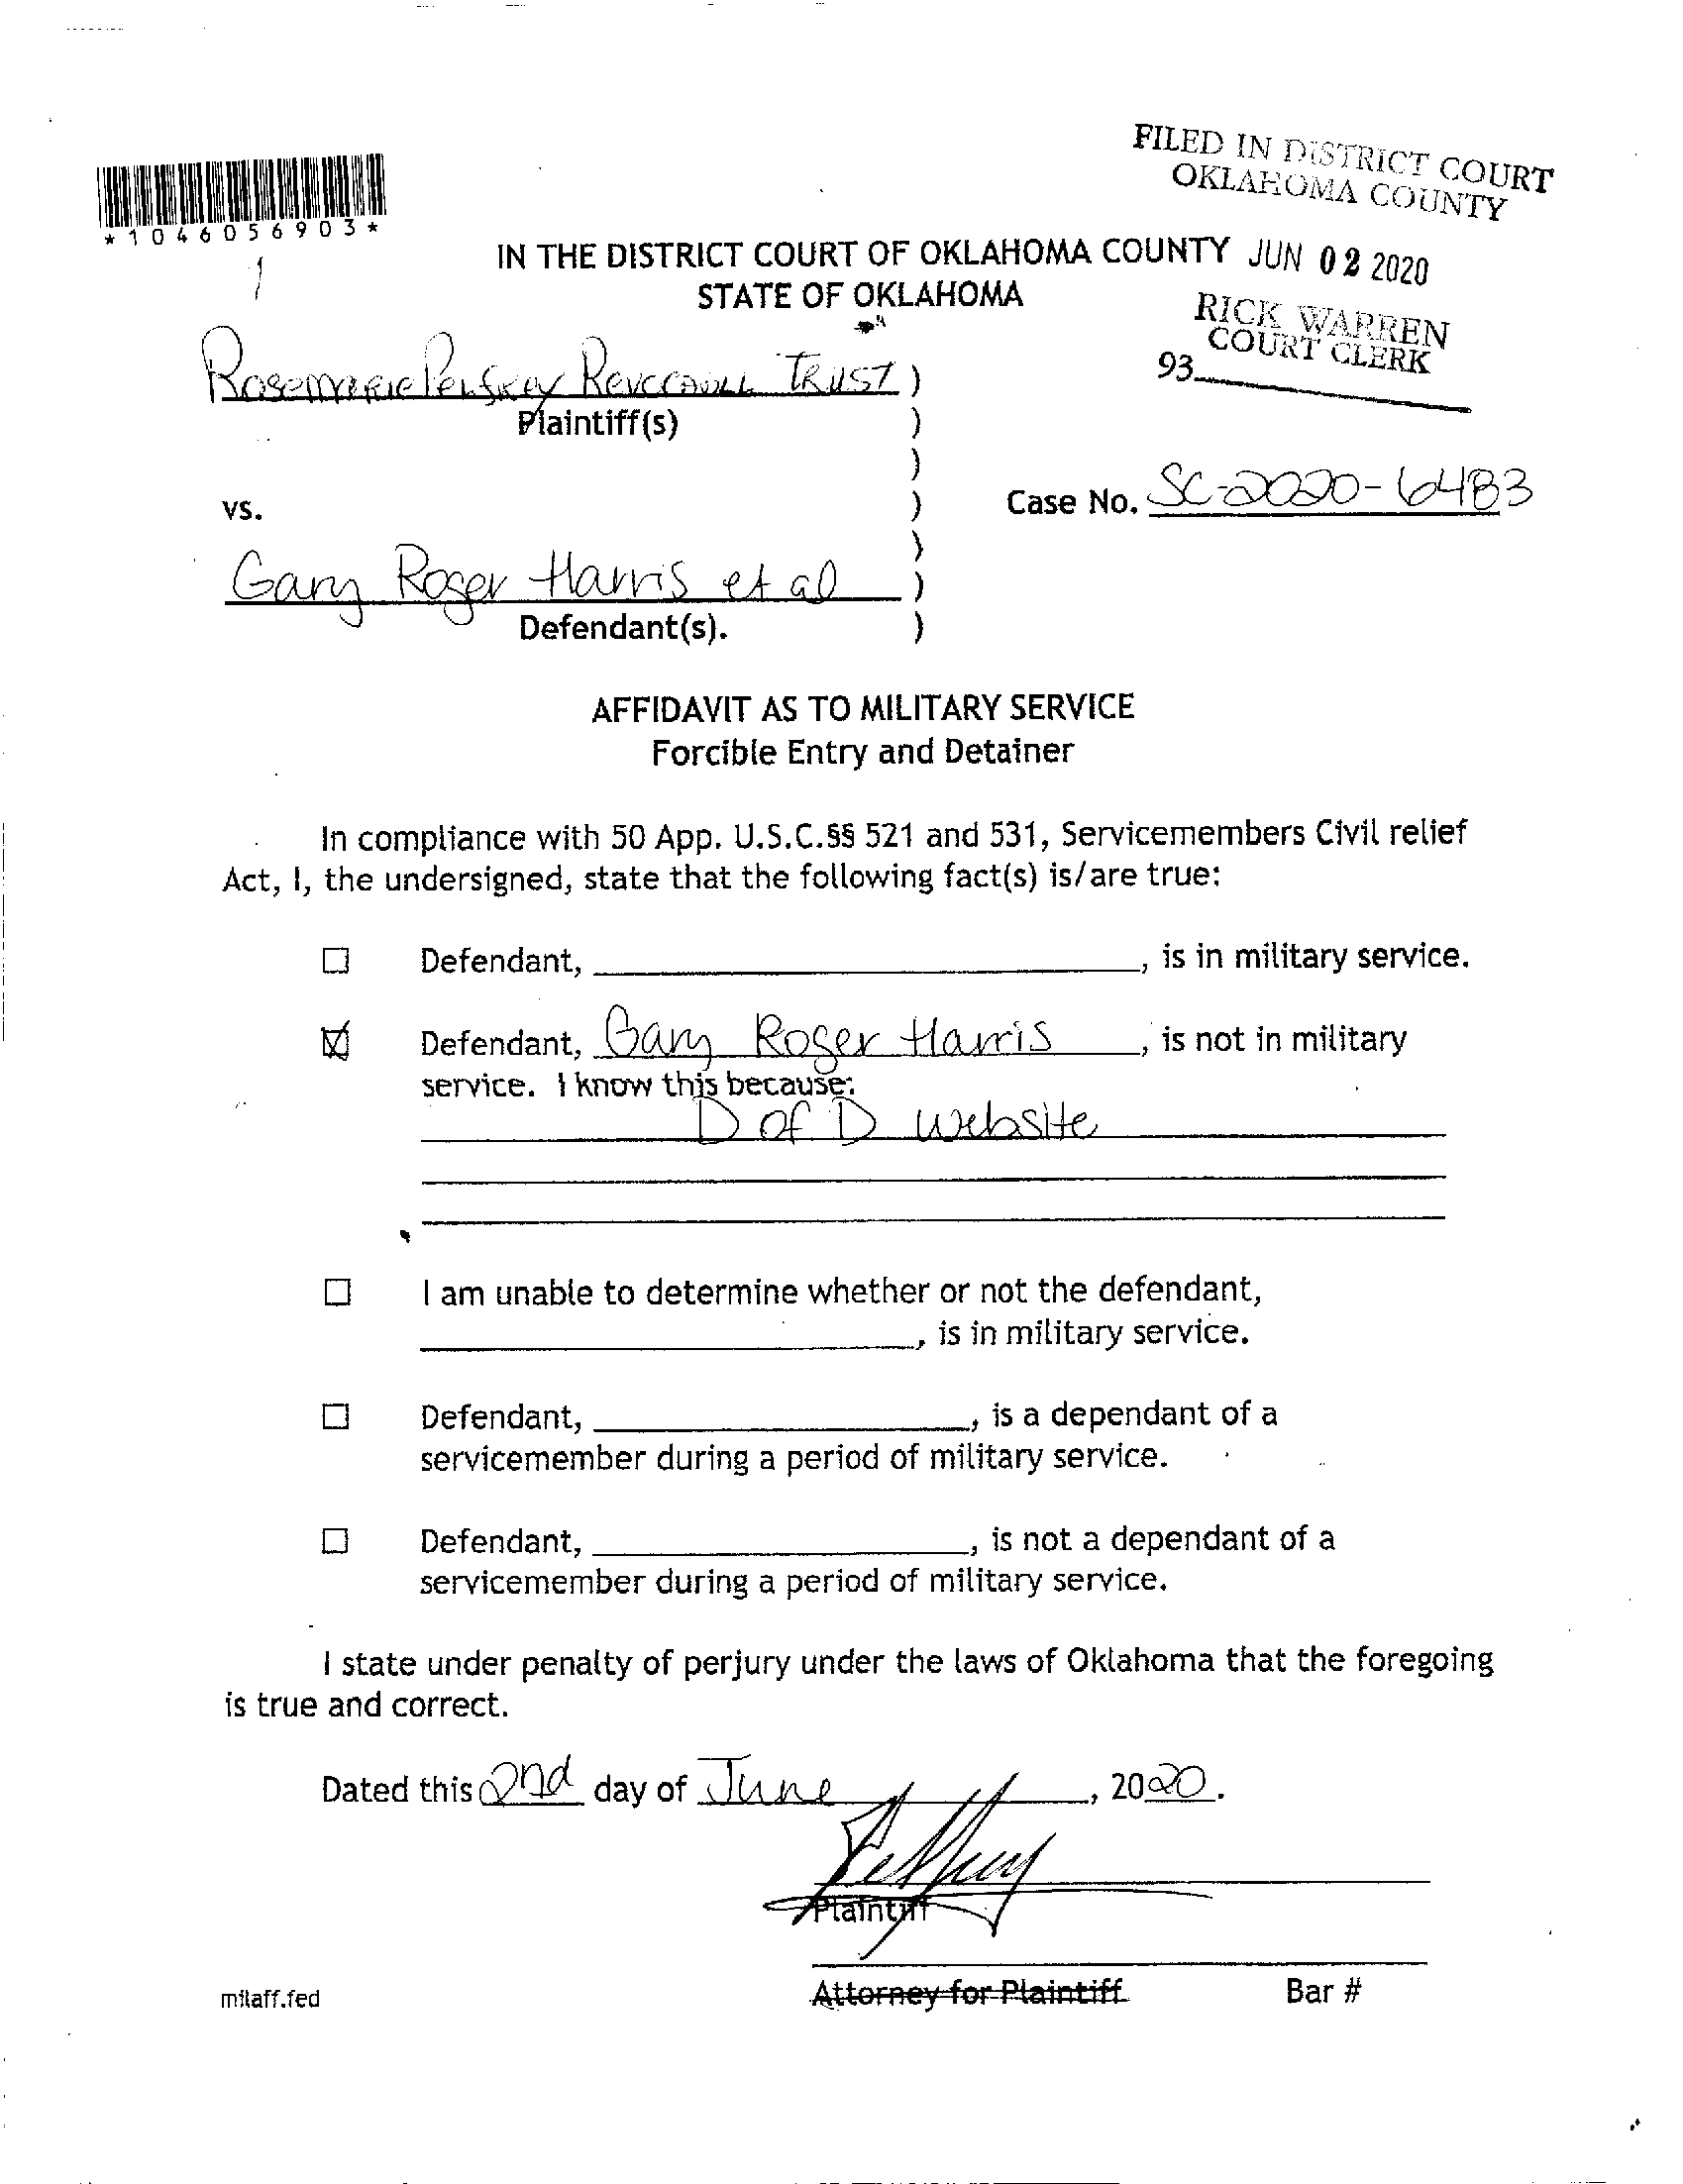 FILED IN DISTRICT COURT
OKLAHOMA COUNTY
*1046056903*
1
IN THE DISTRICT COURT OF OKLAHOMA COUNTY
JUN 02 2020
STATE OF OKLAHOMA
RICK WARREN
COURT CLERK
93
Rosemarie TRUST )
Plaintiff(s) )
)
vs. )
Case No. SC-2020-6483
)
Gary Roger Harris et al )
Defendant(s). )
AFFIDAVIT AS TO MILITARY SERVICE
Forcible Entry and Detainer
In compliance with 50 App. U.S.C.§§ 521 and 531, Servicemembers Civil relief
Act, I, the undersigned, state that the following fact(s) is/are true:
☐ Defendant, , is in military service.
☒ Defendant, Gary Roger Harris , is not in military
service. I know this because:
D of D website
☐ I am unable to determine whether or not the defendant,
, is in military service.
☐ Defendant, , is a dependant of a
servicemember during a period of military service.
☐ Defendant, , is not a dependant of a
servicemember during a period of military service.
I state under penalty of perjury under the laws of Oklahoma that the foregoing
is true and correct.
Dated this 2nd day of June , 2020.
Plaintiff
Attorney for Plaintiff Bar #
milaff.fed